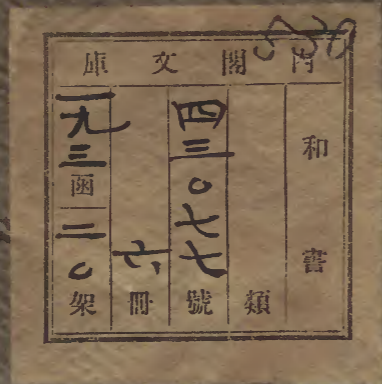 内閣文庫
和書
類
四三〇七七號
六冊
一九三函二〇架